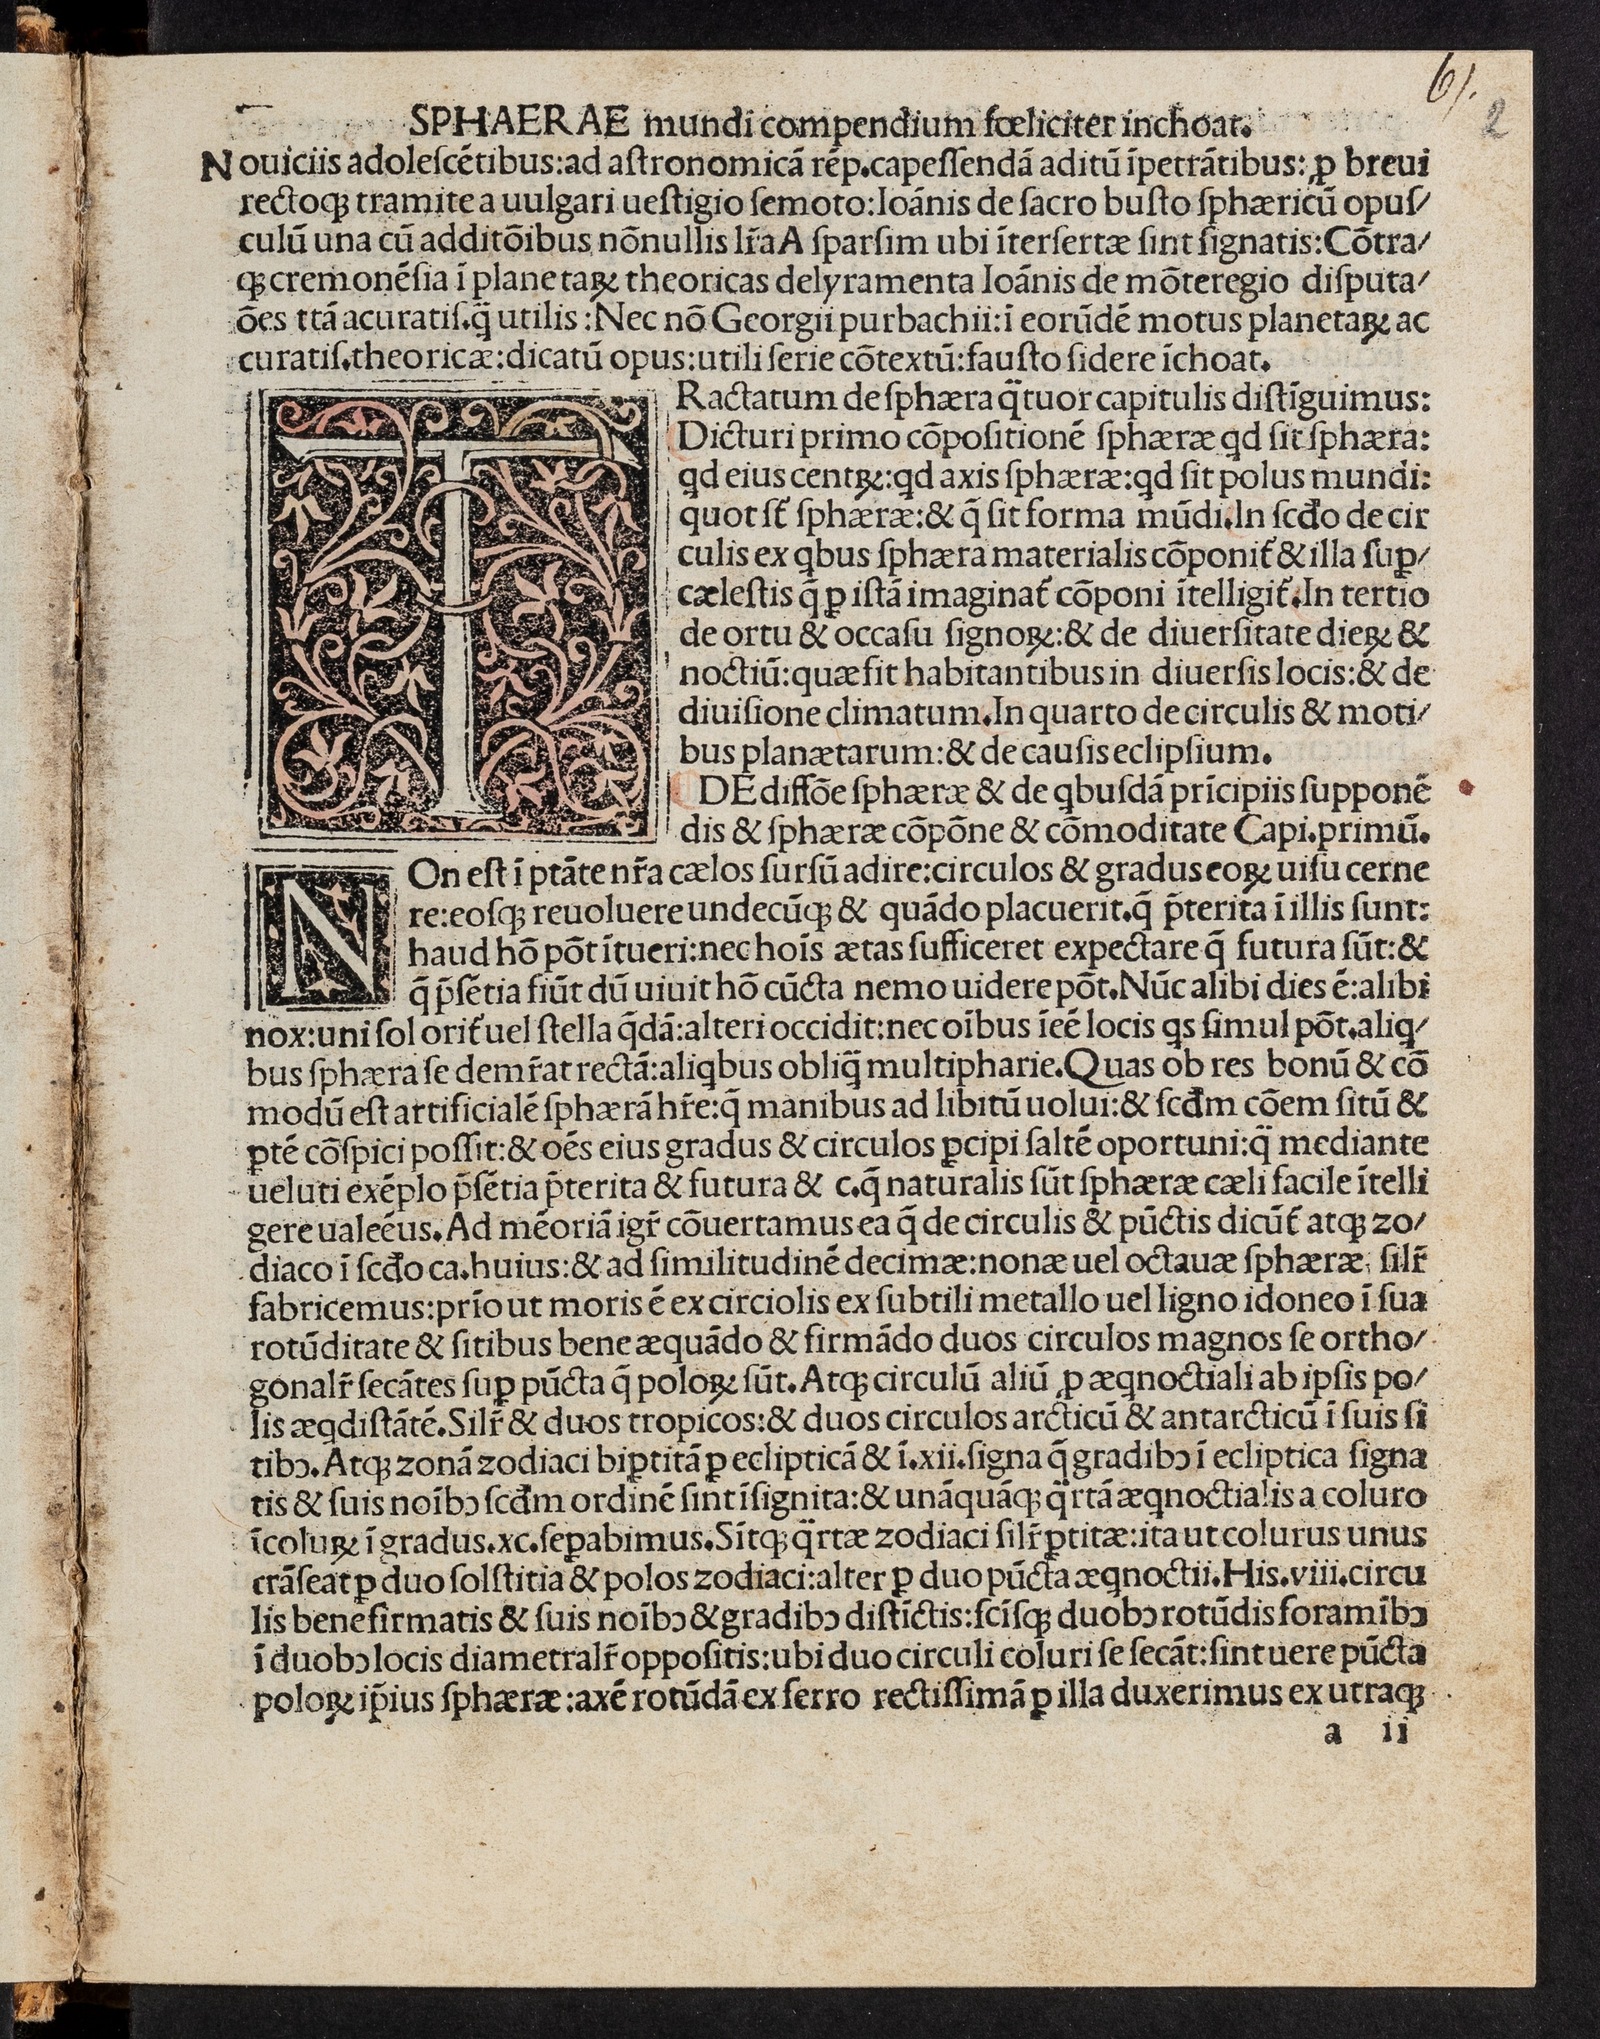 61.
2
SPHAERAE mundi compendium fœliciter inchoat.
Nouiciis adoleſcẽtibus:ad aſtronomicã rẽp.capeſſendã aditũ ĩpetrãtibus:ꝓ breui
rectoqꝫ tramite a uulgari ueſtigio ſemoto:Ioãnis de ſacro buſto ſphæricũ opuſ/
culũ una cũ additõibus nõnullis lr̃a A ſparſim ubi ĩterſertæ ſint ſignatis:Cõtra/
qꝫ cremonẽſia ĩ planetaꝝ theoricas delyramenta Ioãnis de mõteregio diſputa/
ões ttã acuratiſ.q̃ utilis:Nec nõ Georgii purbachii:ĩ eorũdẽ motus planetaꝝ ac
curatiſ.theoricæ:dicatũ opus:utili ſerie cõtextũ:fauſto ſidere ĩchoat.
TRactatum de ſphæra q̃tuor capitulis diſtĩguimus:
Dicturi primo cõpoſitionẽ ſphæræ qd ſit ſphæra:
qd eius centꝝ:qd axis ſphæræ:qd ſit polus mundi:
quot ſt̃ ſphæræ:& q̃ ſit forma mũdi.In ſcđo de cir
culis ex qbus ſphæra materialis cõponit̃ & illa ſuꝑ/
cæleſtis q̃ ꝑ iſtã imaginat̃ cõponi ĩtelligit̃.In tertio
de ortu & occaſu ſignoꝝ:& de diuerſitate dieꝝ &
noctiũ:quæ fit habitantibus in diuerſis locis:& de
diuiſione climatum.In quarto de circulis & moti/
bus planætarum:& de cauſis eclipſium.
DE diffõe ſphæræ & de qbuſdã prĩcipiis ſupponẽ
dis & ſphæræ cõpõne & cõmoditate Capi.primũ.
NOn eſt ĩ ptãte nr̃a cælos ſurſũ adire:circulos & gradus eoꝝ uiſu cerne
re:eoſqꝫ reuoluere undecũqꝫ & quãdo placuerit.q̃ p̃terita ĩ illis ſunt:
haud hõ põt ĩtueri:nec hoĩs ætas ſufficeret expectare q̃ futura ſũt:&
q̃ p̃ſẽtia fiũt dũ uiuit hõ cũcta nemo uidere põt.Nũc alibi dies ẽ:alibi
nox:uni ſol orit̃ uel ſtella q̃dã:alteri occidit:nec oĩbus ĩeẽ locis qs ſimul põt.aliq/
bus ſphæra ſe demr̃at rectã:aliqbus obliq̃ multipharie.Quas ob res bonũ & cõ
modũ eſt artificialẽ ſphærã hr̃e:q̃ manibus ad libitũ uolui:& ſcđm cõem ſitũ &
ꝑtẽ cõſpici poſſit:& oẽs eius gradus & circulos ꝑcipi ſaltẽ oportuni:q̃ mediante
ueluti exẽplo p̃ſẽtia p̃terita & futura & c.q̃ naturalis ſũt ſphæræ cæli facile ĩtelli
gere ualeẽus.Ad mẽoriã igr̃ cõuertamus ea q̃ de circulis & pũctis dicũt̃ atqꝫ zo/
diaco ĩ ſcđo ca.huius:& ad ſimilitudinẽ decimæ:nonæ uel octauæ ſphæræ, ſilr̃
fabricemus:prĩo ut moris ẽ ex circiolis ex ſubtili metallo uel ligno idoneo ĩ ſua
rotũditate & ſitibus bene æquãdo & firmãdo duos circulos magnos ſe ortho/
gonalr̃ ſecãtes ſuꝑ pũcta q̃ poloꝝ ſũt.Atqꝫ circulũ aliũ ꝓ æqnoctiali ab ipſis po/
lis æqdiſtãtẽ.Silr̃ & duos tropicos:& duos circulos arcticũ & antarcticũ ĩ ſuis ſi
tibꝯ.Atqꝫ zonã zodiaci biꝑtitã ꝑ eclipticã & ĩ.xii.ſigna q̃ gradibꝯ ĩ ecliptica ſigna
tis & ſuis noĩbꝯ ſcđm ordinẽ ſint ĩſignita:& unãquãqꝫ q̃rtã æqnoctialis a coluro
ĩ coluꝝ ĩ gradus.xc.ſeꝑabimus.Sĩtqꝫ q̃rtæ zodiaci ſilr̃ ꝑtitæ:ita ut colurus unus
trãſeat ꝑ duo ſolſtitia & polos zodiaci:alter ꝑ duo pũcta æqnoctii.His.viii.circu
lis bene firmatis & ſuis noĩbꝯ & gradibꝯ diſtĩctis:ſciſqꝫ duobꝯ rotũdis foramĩbꝯ
ĩ duobꝯ locis diametralr̃ oppoſitis:ubi duo circuli coluri ſe ſecãt:ſint uere pũcta
poloꝝ ip̃ius ſphæræ:axẽ rotũdã ex ferro rectiſſimã ꝑ illa duxerimus ex utraqꝫ
a ii